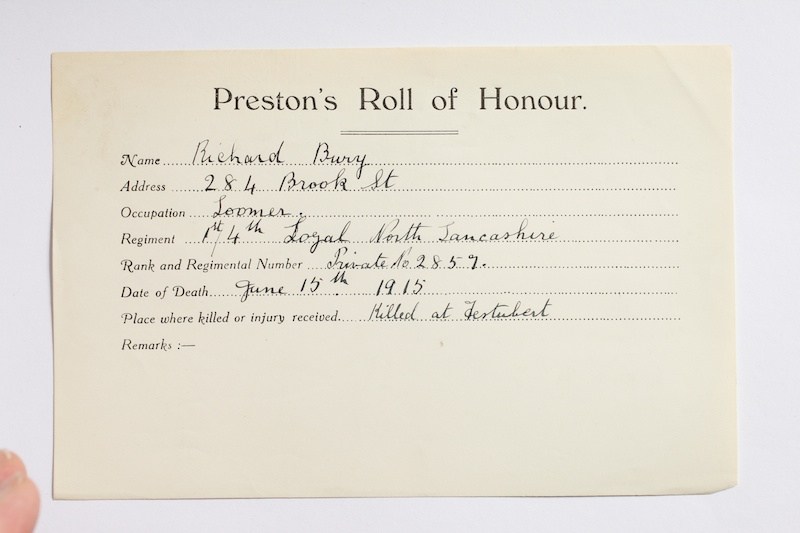 Preston's Roll of Honour.
Name Richard Bury
Address 284 Brook St
Occupation Loomer.
Regiment 1st/4th Loyal North Lancashire
Rank and Regimental Number Private No 2857.
Date of Death June 15th 1915
Place where killed or injury received. Killed at Festubert
Remarks :—